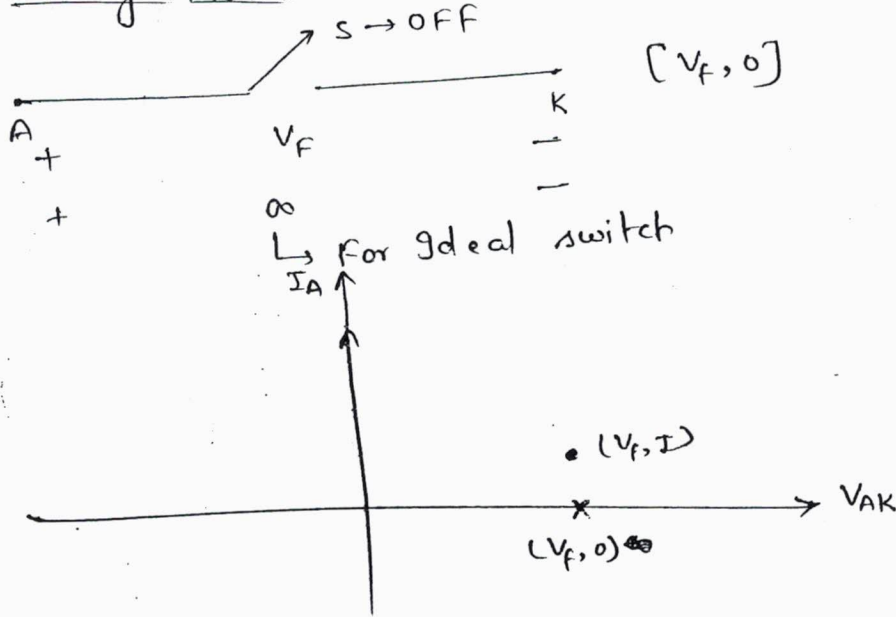 S → OFF
[V_F, 0]
A
K
+
V_F
−
+
∞
−
↳ For Ideal switch
I_A
(V_F, I)
V_AK
(V_F, 0)